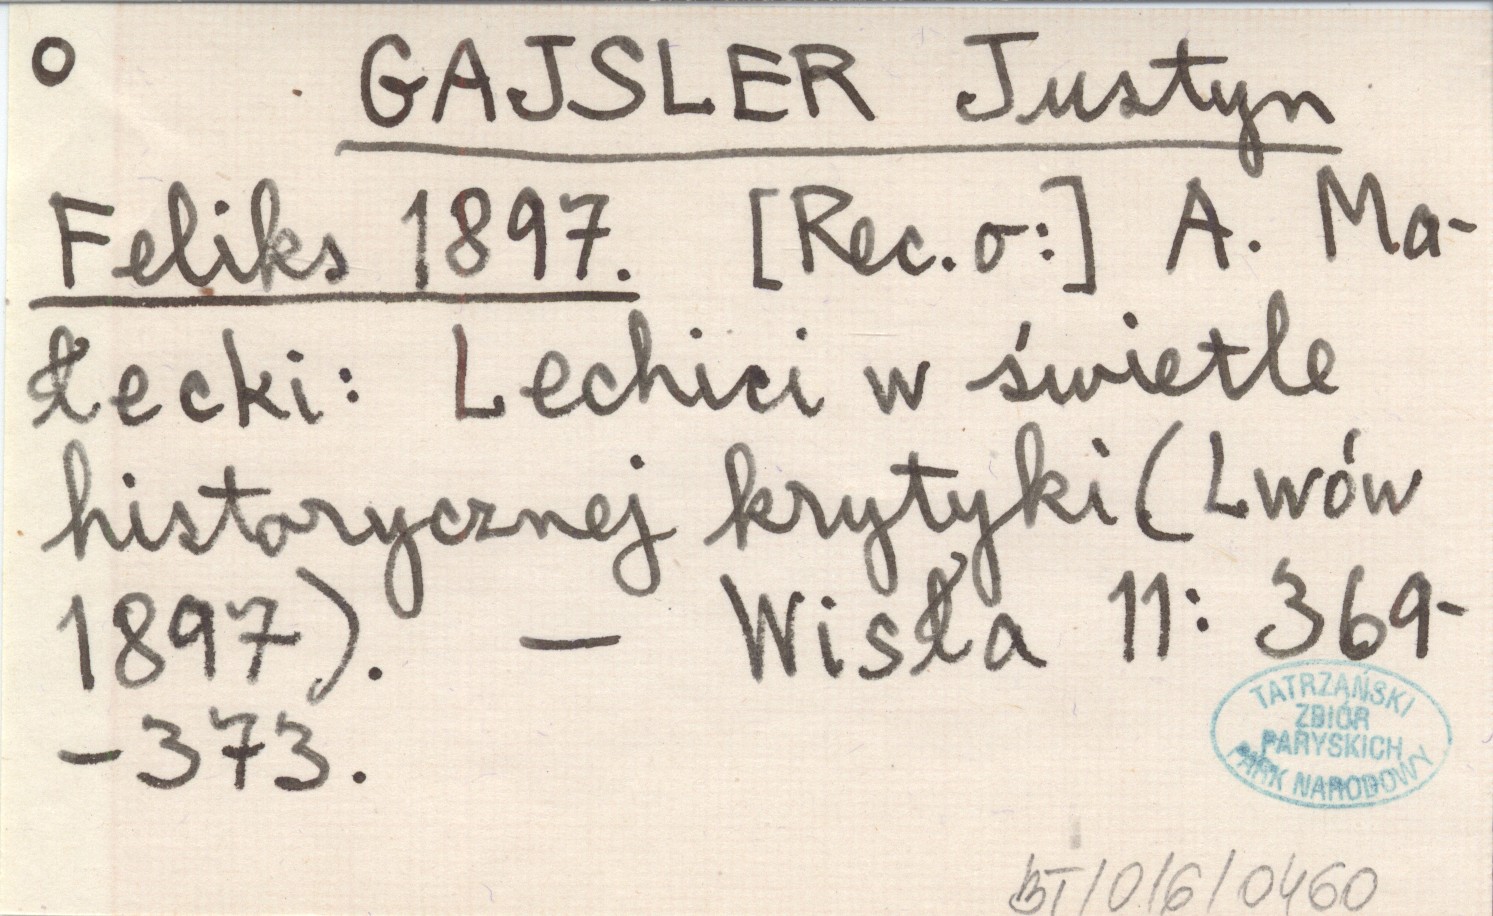 o GAJSLER Justyn
Feliks 1897. [Rec. o:] A. Ma-
łecki: Lechici w świetle
historycznej krytyki (Lwów
1897). — Wisła 11: 369-
-373.
TATRZAŃSKI
ZBIÓR
PARYSKICH
PARK NARODOWY
BT/0/6/0460